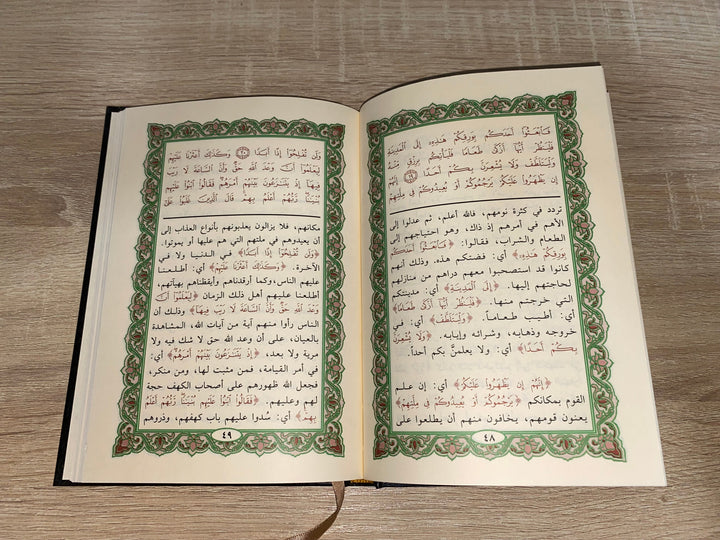 فَٱبْعَثُوٓا۟ أَحَدَكُم بِوَرِقِكُمْ هَٰذِهِۦٓ إِلَى ٱلْمَدِينَةِ
فَلْيَنظُرْ أَيُّهَآ أَزْكَىٰ طَعَامًا فَلْيَأْتِكُم بِرِزْقٍ مِّنْهُ
وَلْيَتَلَطَّفْ وَلَا يُشْعِرَنَّ بِكُمْ أَحَدًا ﴿١٩﴾ إِنَّهُمْ
إِن يَظْهَرُوا۟ عَلَيْكُمْ يَرْجُمُوكُمْ أَوْ يُعِيدُوكُمْ فِى مِلَّتِهِمْ
تردد في كثرة نومهم، فالله أعلم، ثم عدلوا إلى
الأهم في أمرهم إذ ذاك، وهو احتياجهم إلى
الطعام والشراب، فقالوا: ﴿فَٱبْعَثُوٓا۟ أَحَدَكُم
بِوَرِقِكُمْ هَٰذِهِۦٓ﴾ أي: فضتكم هذه، وذلك أنهم
كانوا قد استصحبوا معهم دراهم من منازلهم
لحاجتهم إليها. ﴿إِلَى ٱلْمَدِينَةِ﴾ أي: مدينتكم
التي خرجتم منها. ﴿فَلْيَنظُرْ أَيُّهَآ أَزْكَىٰ طَعَامًا﴾
أي: أطيب طعاماً. ﴿وَلْيَتَلَطَّفْ﴾ أي: في
خروجه وذهابه، وشرائه وإيابه. ﴿وَلَا يُشْعِرَنَّ
بِكُمْ أَحَدًا﴾ أي: ولا يعلمنَّ بكم أحداً.
﴿إِنَّهُمْ إِن يَظْهَرُوا۟ عَلَيْكُمْ﴾ أي: إن علم
القوم بمكانكم ﴿يَرْجُمُوكُمْ أَوْ يُعِيدُوكُمْ فِى مِلَّتِهِمْ﴾
يعنون قومهم، يخافون منهم أن يطلعوا على
٤٨
وَلَن تُفْلِحُوٓا۟ إِذًا أَبَدًا ﴿٢٠﴾ وَكَذَٰلِكَ أَعْثَرْنَا عَلَيْهِمْ
لِيَعْلَمُوٓا۟ أَنَّ وَعْدَ ٱللَّهِ حَقٌّ وَأَنَّ ٱلسَّاعَةَ لَا رَيْبَ
فِيهَآ إِذْ يَتَنَٰزَعُونَ بَيْنَهُمْ أَمْرَهُمْ فَقَالُوا۟ ٱبْنُوا۟ عَلَيْهِم
بُنْيَٰنًا رَّبُّهُمْ أَعْلَمُ بِهِمْ قَالَ ٱلَّذِينَ غَلَبُوا۟ عَلَىٰٓ
مكانهم، فلا يزالون يعذبونهم بأنواع العذاب إلى
أن يعيدوهم في ملتهم التي هم عليها أو يموتوا.
﴿وَلَن تُفْلِحُوٓا۟ إِذًا أَبَدًا﴾ في الدنيا ولا في
الآخرة. ﴿وَكَذَٰلِكَ أَعْثَرْنَا عَلَيْهِمْ﴾ أي: أطلعنا
عليهم الناس، وكما أرقدناهم وأيقظناهم بهيآتهم،
أطلعنا عليهم أهل ذلك الزمان ﴿لِيَعْلَمُوٓا۟ أَنَّ
وَعْدَ ٱللَّهِ حَقٌّ وَأَنَّ ٱلسَّاعَةَ لَا رَيْبَ فِيهَآ﴾ وذلك أن
الناس رأوا منهم آية من آيات الله، المشاهدة
بالعيان، على أن وعد الله حق لا شك فيه ولا
مرية ولا بعد، ﴿إِذْ يَتَنَٰزَعُونَ بَيْنَهُمْ أَمْرَهُمْ﴾ أي:
في أمر القيامة، فمن مثبت لها، ومن منكر،
فجعل الله ظهورهم على أصحاب الكهف حجة
لهم وعليهم. ﴿فَقَالُوا۟ ٱبْنُوا۟ عَلَيْهِم بُنْيَٰنًا رَّبُّهُمْ أَعْلَمُ
بِهِمْ﴾ أي: سُدوا عليهم باب كهفهم، وذروهم
٤٩